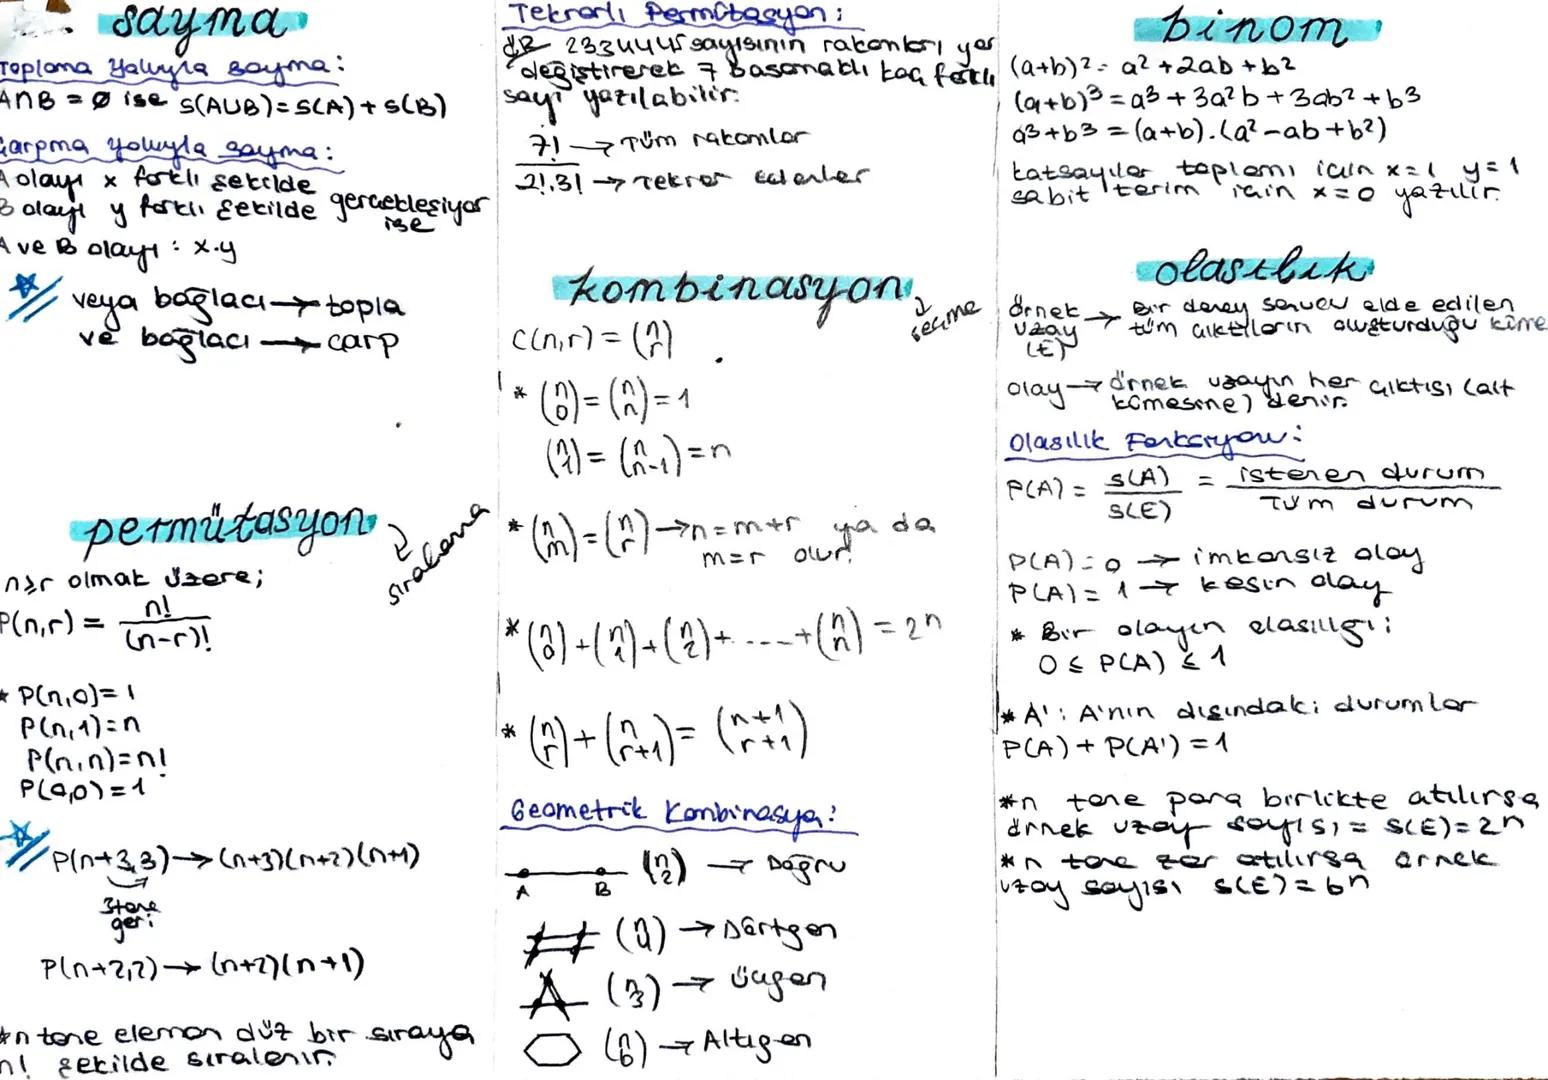 sayma
Toplama Yoluyla Sayma:
A∩B = ∅ ise s(A∪B)=s(A)+s(B)
Çarpma Yoluyla Sayma:
A olayı x farklı şekilde
B olayı y farklı şekilde gerçekleşiyor
ise
A ve B olayı : x.y
veya bağlacı → topla
ve bağlacı → çarp
permütasyon
sıralama
n≥r olmak üzere;
P(n,r) = n!/(n-r)!
* P(n,0)=1
P(n,1)=n
P(n,n)=n!
P(0,0)=1
P(n+3,3) → (n+3)(n+2)(n+1)
3 tane
geri
P(n+2,2) → (n+2)(n+1)
*n tane eleman düz bir sıraya
n! şekilde sıralanır.
Tekrarlı Permütasyon:
ÖR 2334445 sayısının rakamları yer
değiştirerek 7 basamaklı kaç farklı
sayı yazılabilir.
7! → Tüm rakamlar
2!.3! → Tekrar edenler
kombinasyon
seçme
C(n,r) = (n r)
* (n 0) = (n n) = 1
(n 1) = (n n-1) = n
* (n m) = (n r) → n=m+r ya da
m=r olur.
* (n 0)+(n 1)+(n 2)+.....+(n n) = 2ⁿ
* (n r)+(n r+1) = (n+1 r+1)
Geometrik Kombinasyon:
A B (n 2) → Doğru
(n 4) → Dörtgen
(n 3) → Üçgen
(n 6) → Altıgen
binom
(a+b)² = a²+2ab+b²
(a+b)³ = a³+3a²b+3ab²+b³
a³+b³ = (a+b).(a²-ab+b²)
katsayılar toplamı için x=1 y=1
sabit terim için x=0 yazılır.
olasılık
Örnek uzay (E) → Bir deney sonucu elde edilen
tüm çıktıların oluşturduğu küme
olay → örnek uzayın her çıktısı (alt
kümesine) denir.
Olasılık Fonksiyonu:
P(A) = s(A)/s(E) = istenen durum/Tüm durum
P(A)=0 → imkansız olay
P(A)=1 → kesin olay
* Bir olayın olasılığı;
0 ≤ P(A) ≤ 1
* A': A'nın dışındaki durumlar
P(A)+P(A')=1
*n tane para birlikte atılırsa
örnek uzay sayısı = s(E)=2ⁿ
*n tane zar atılırsa örnek
uzay sayısı s(E)=6ⁿ